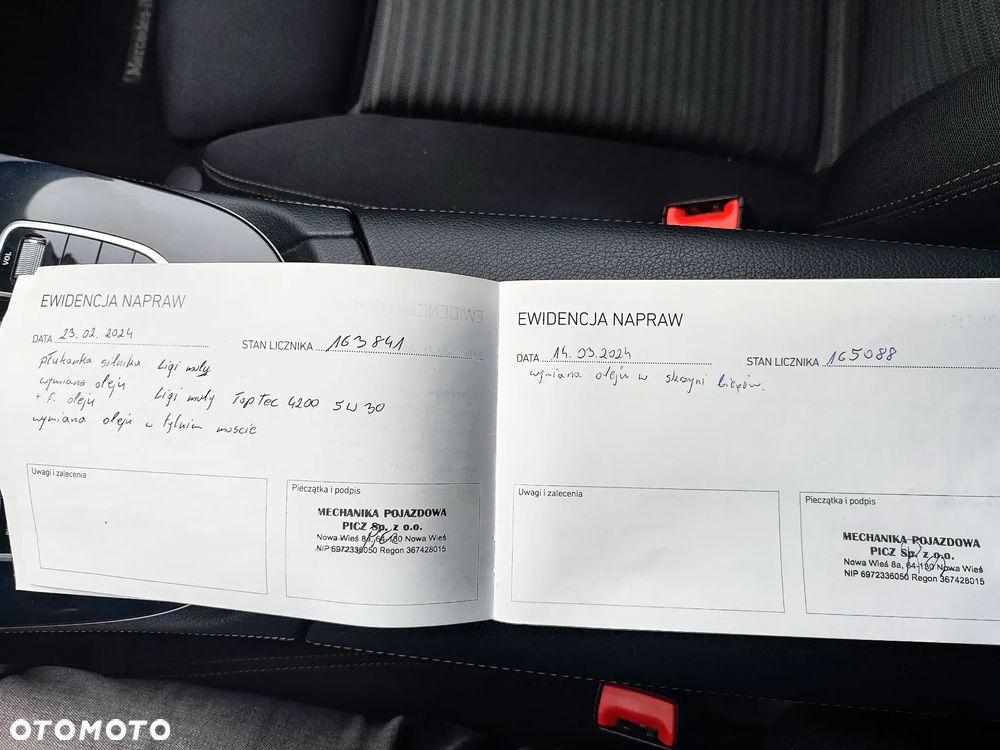 Mercedes
VOL
EWIDENCJA NAPRAW
DATA 23.02.2024
STAN LICZNIKA 163841
płukanka silnika Liqi moly
wymiana oleju
+ f. oleju Liqi moly TopTec 4200 5W30
wymiana oleju w tylnim moście
Uwagi i zalecenia
Pieczątka i podpis
MECHANIKA POJAZDOWA
PICZ Sp. z o.o.
Nowa Wieś 8a, 64-130 Nowa Wieś
NIP 6972336050 Regon 367428015
EWIDENCJA NAPRAW
DATA 14.03.2024
STAN LICZNIKA 165088
wymiana oleju w skrzyni biegów.
Uwagi i zalecenia
Pieczątka i podpis
MECHANIKA POJAZDOWA
PICZ Sp. z o.o.
Nowa Wieś 8a, 64-130 Nowa Wieś
NIP 6972336050 Regon 367428015
OTOMOTO